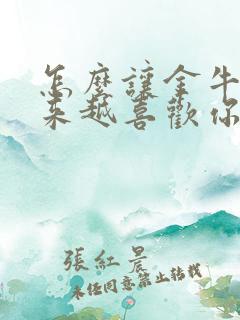 怎麼讓金牛
來越喜歡你
張紅晨
未经同意禁止转载